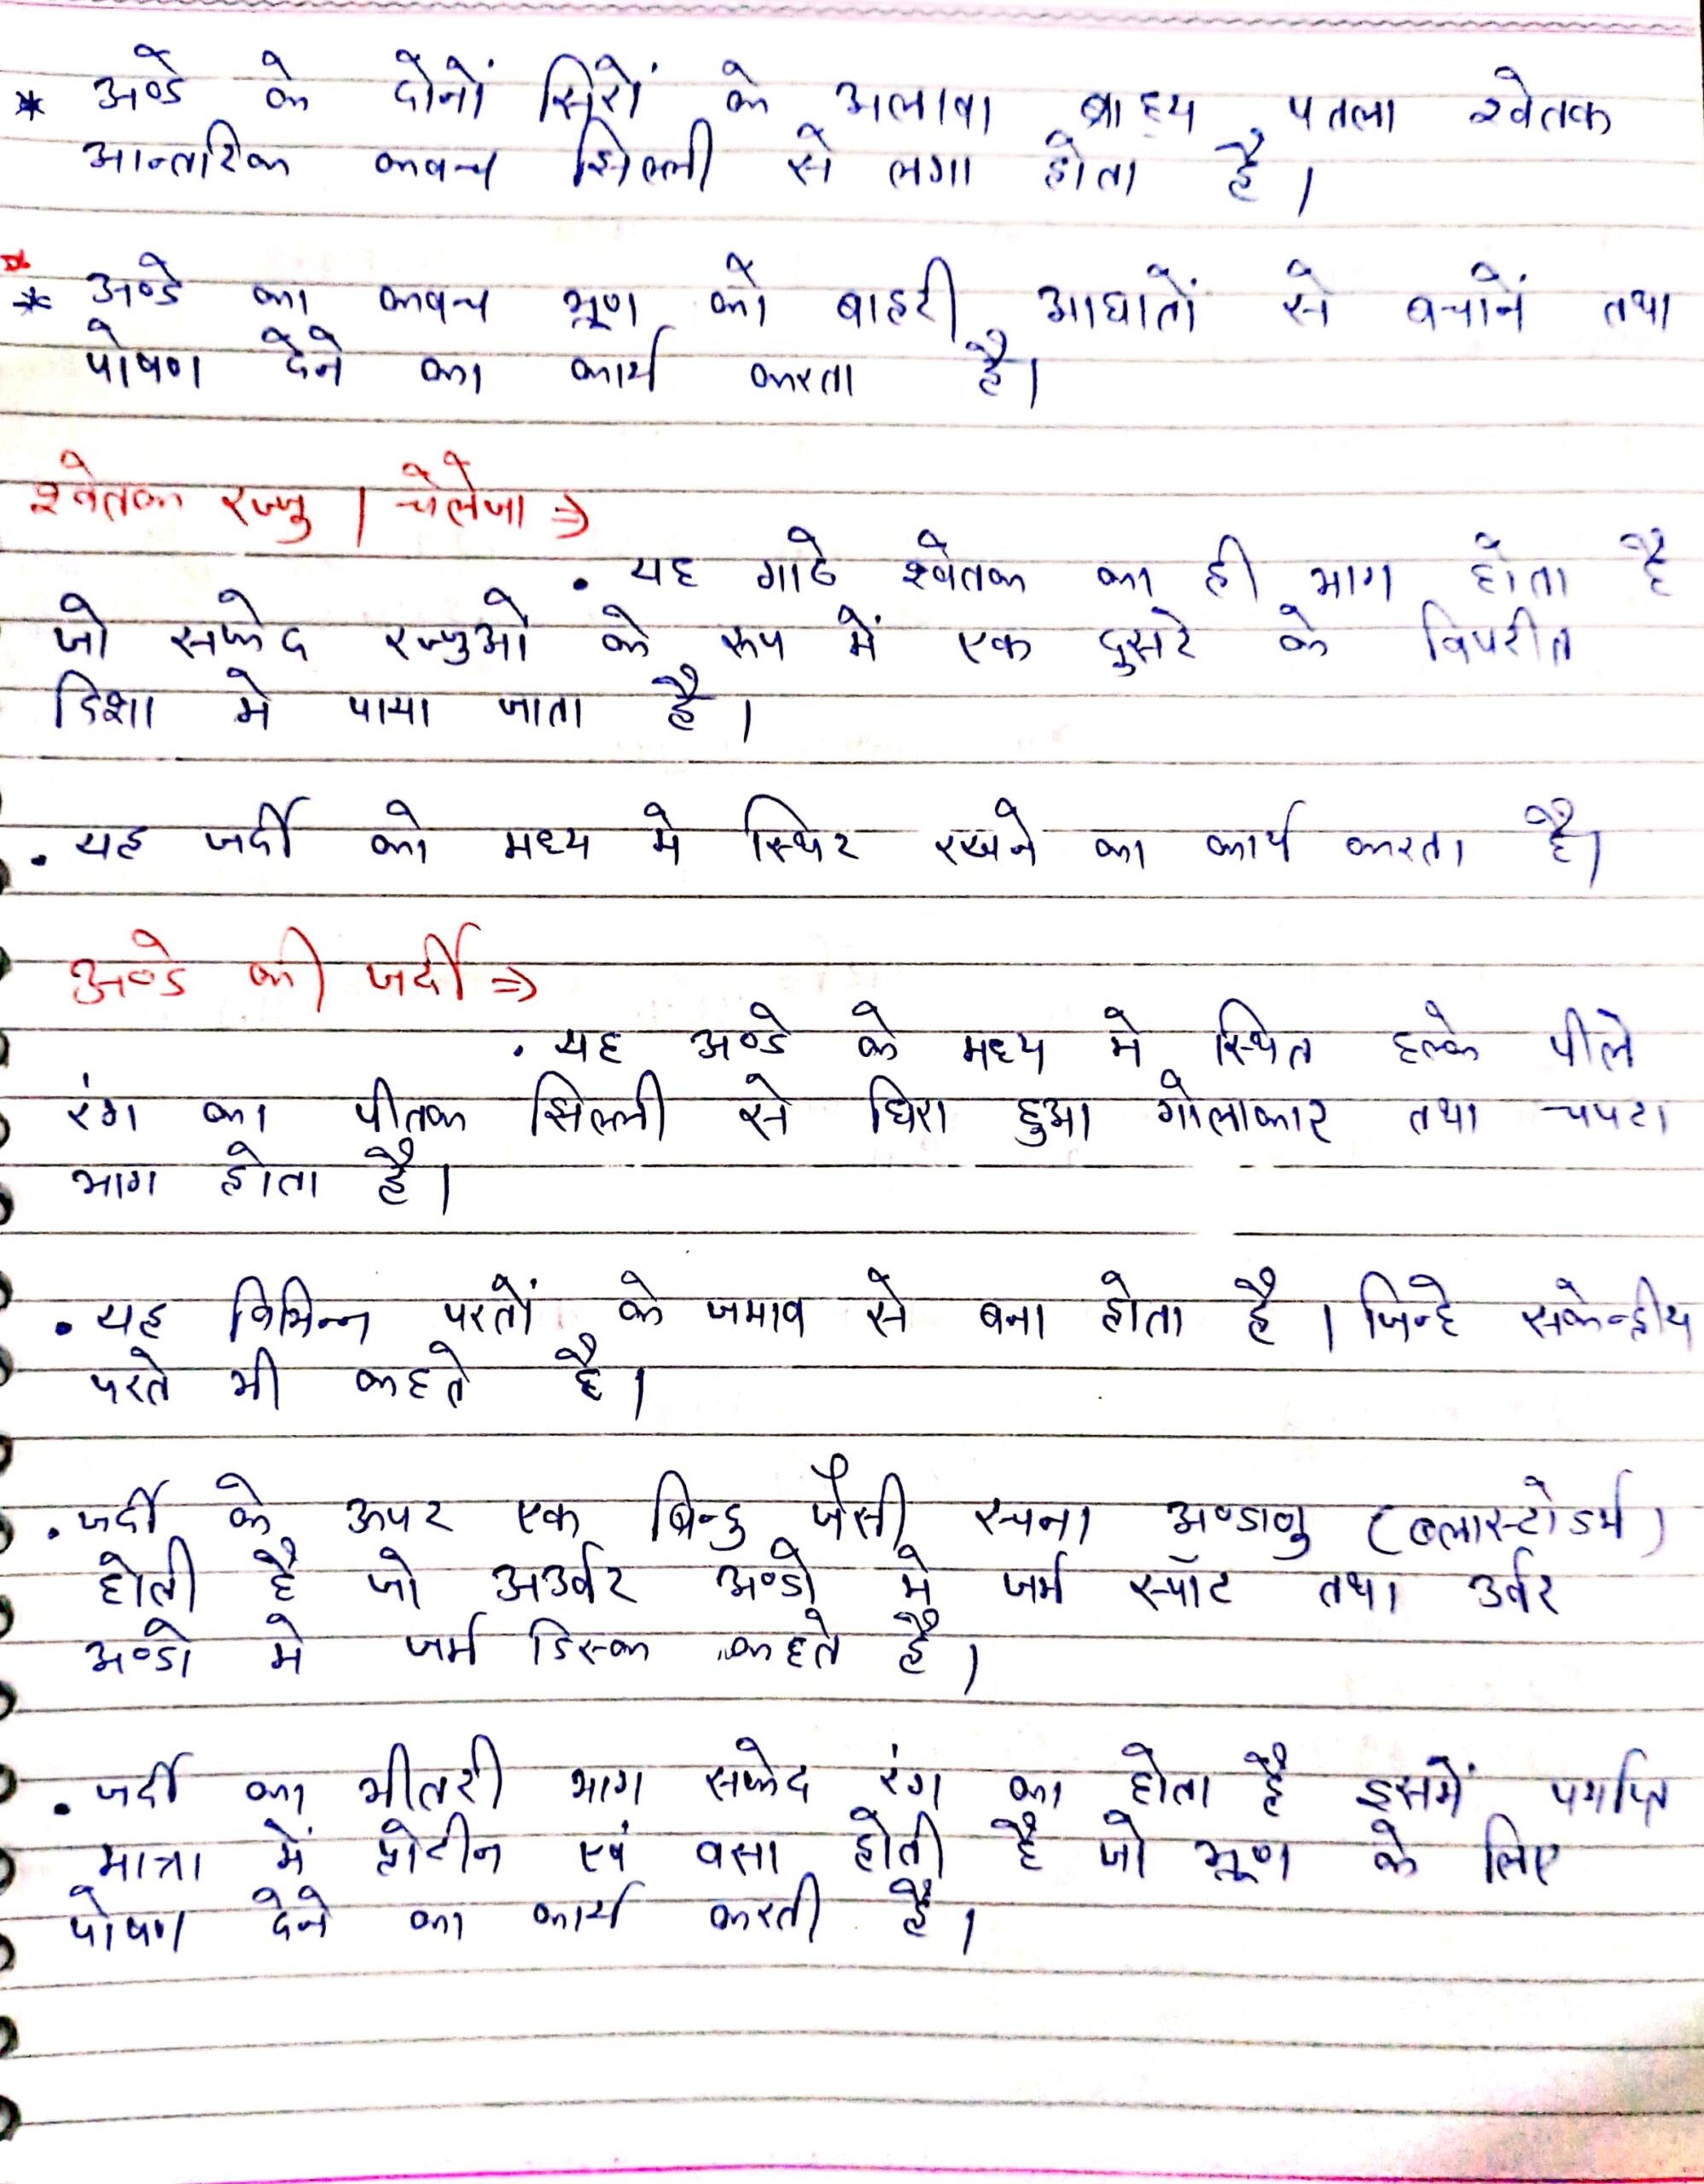 * अण्डे के दोनों सिरों के अलावा बाह्य पतला श्वेतक
आन्तरिक कवच झिल्ली से लगा होता है।
* अण्डे का कवच भ्रूण को बाहरी आघातों से बचानें तथा
पोषण देने का कार्य करता है।
श्वेतक रज्जु / चेलेजा ⇒
• यह गाढे श्वेतक का ही भाग होता है
जो सफेद रज्जुओं के रूप में एक दुसरे के विपरीत
दिशा मे पाया जाता है।
• यह जर्दी को मध्य मे स्थिर रखने का कार्य करता है।
अण्डे की जर्दी ⇒
• यह अण्डे के मध्य मे स्थित हल्के पीले
रंग का पीतक झिल्ली से घिरा हुआ गोलाकार तथा चपटा
भाग होता है।
• यह विभिन्न परतों के जमाव से बना होता है। जिन्हे सकेन्द्रीय
परते भी कहते है।
• जर्दी के ऊपर एक बिन्दु जैसी रचना अण्डाणु (ब्लास्टोडर्म)
होती है जो अउर्वर अण्डो मे जर्म स्पॉट तथा उर्वर
अण्डो मे जर्म डिस्क कहते है।
• जर्दी का भीतरी भाग सफेद रंग का होता है इसमें पर्याप्त
मात्रा में प्रोटीन एवं वसा होती है जो भ्रूण के लिए
पोषण देने का कार्य करती है।